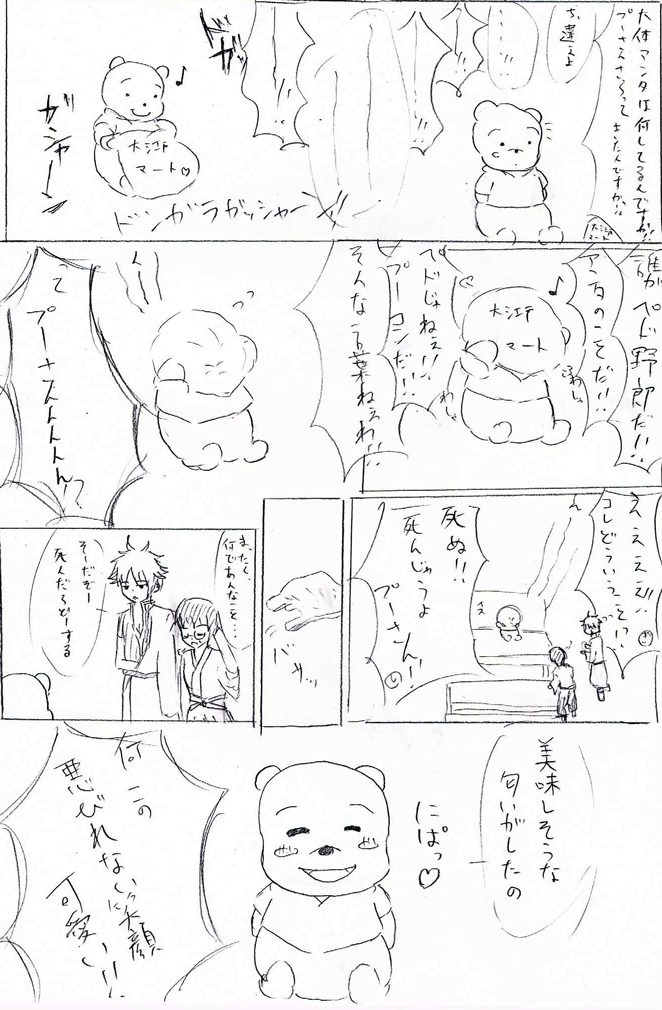 大体アンタは何してるんですか!!
プーさんさらって
きたんですか!!
ち、違ぇよ
・・・!!
ドガッ
♪
大江戸
マート♡
ガシャーン
ドンガラガッシャーン!!
大江戸
マート
誰がペド野郎だ!!
アンタのことだ!!
♪
大江戸
マート
ペドじゃねぇ!!
プーコンだ!!
そんな言葉ねぇわ!!
って
プーさんんんん!?
ええええ!!
コレどういうこと!?
死ぬ!!
死んじゃうよ
プーさん!!
バサッ
まったく
何であんなこと…
そーだぞー
死んだらどーする
美味しそうな
匂いがしたの
にぱっ♡
何この
悪びれない笑顔
可愛い!!